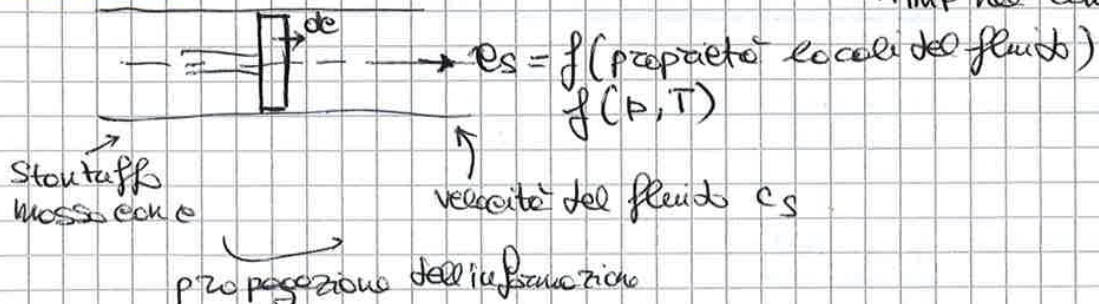 dc
cs = f(proprietà locali del fluido)
f(p,T)
Stantuffo
mosso con c
velocità del fluido cs
propagazione dell'informazione